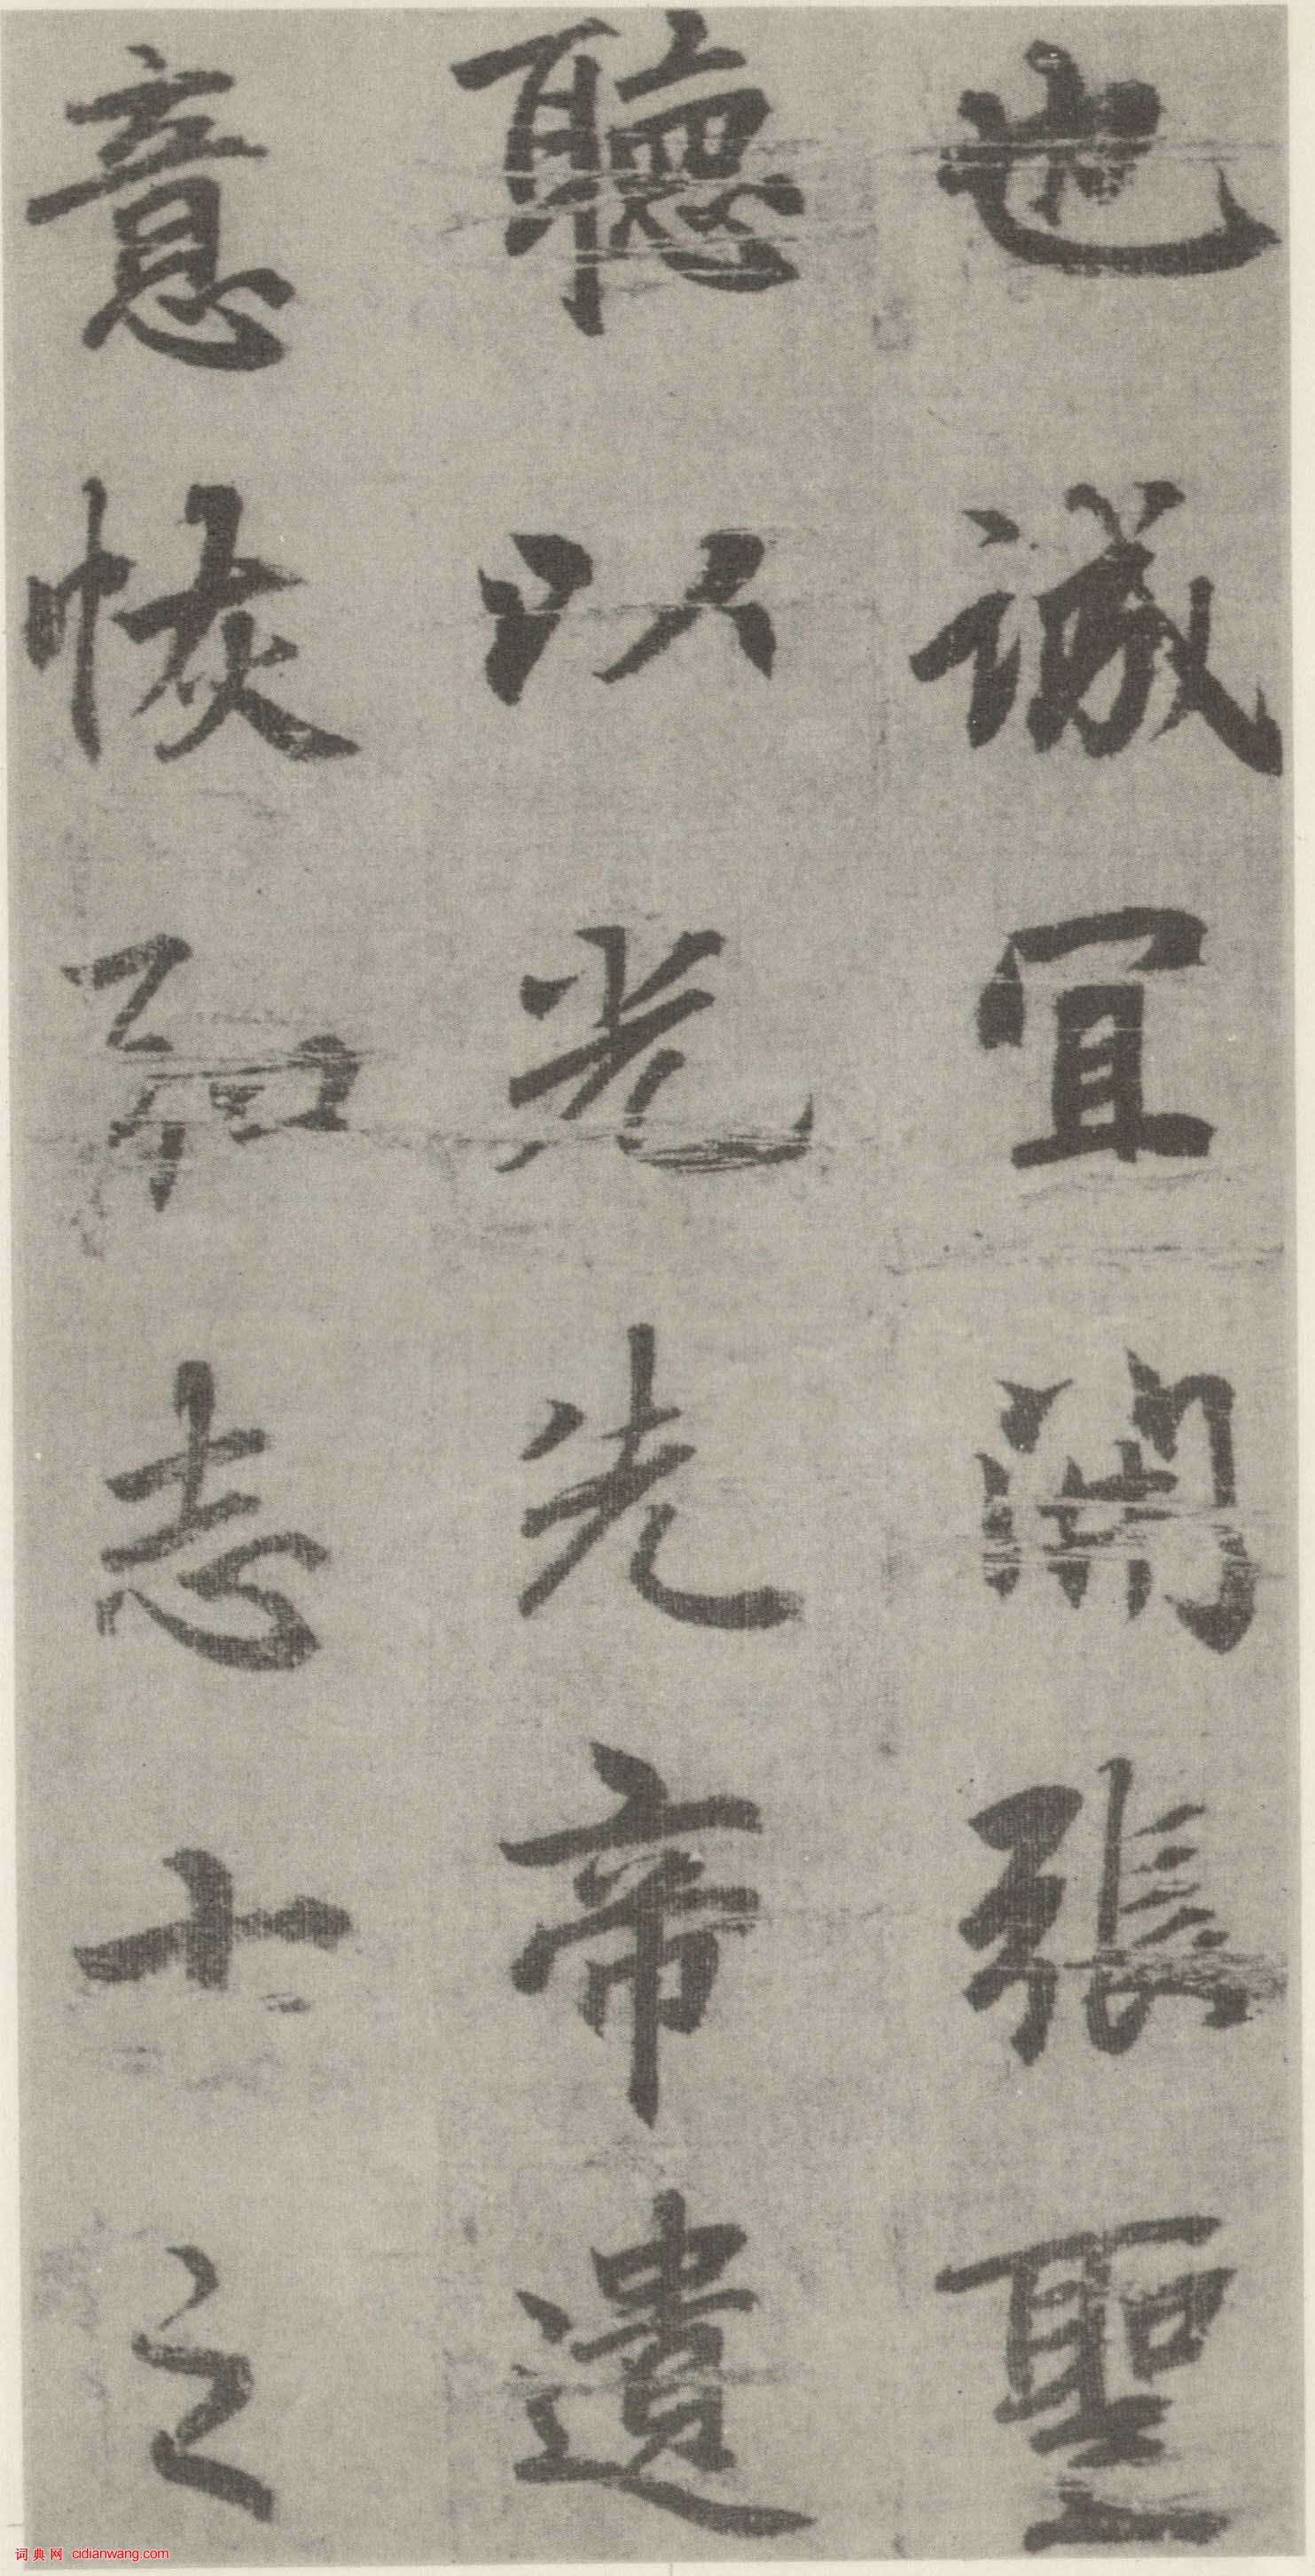 也誠宜開張聖
聽以光先帝遺
意恢弘志士之
词典网 cidianwang.com